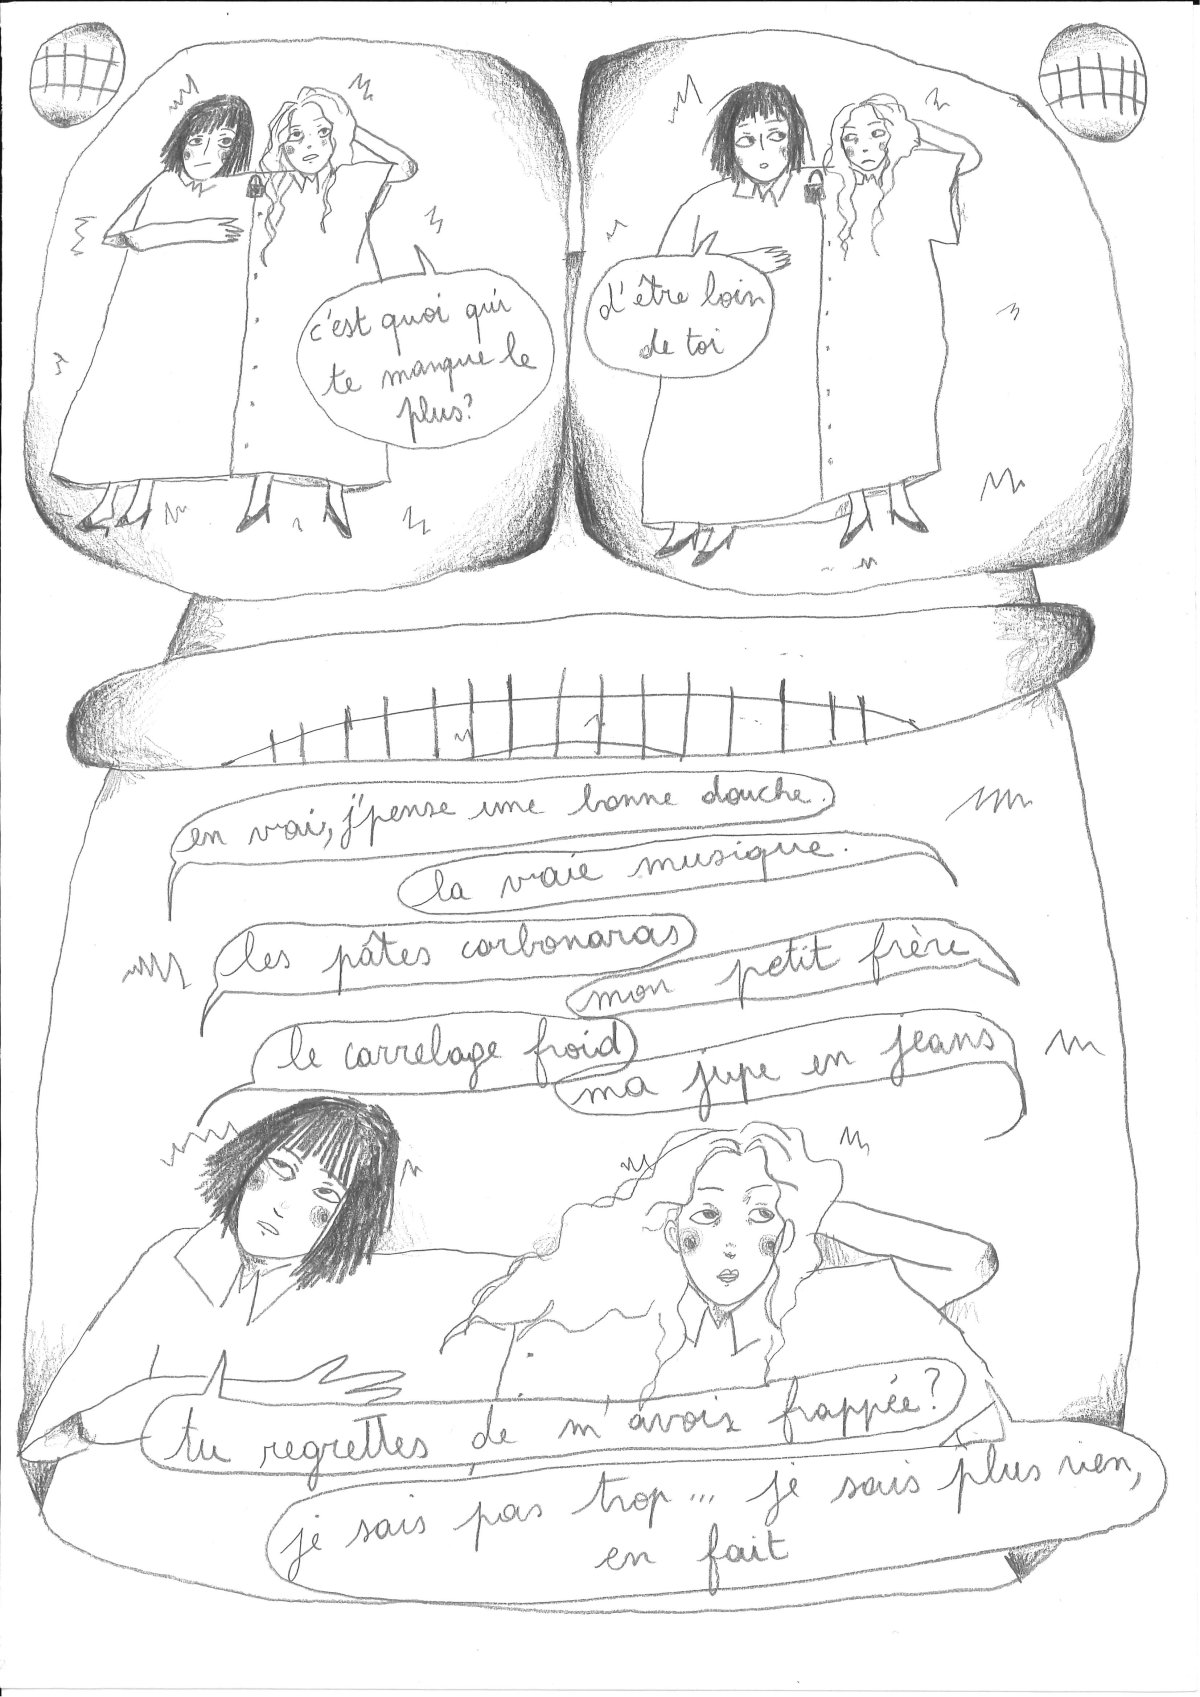 c'est quoi qui
te manque le
plus?
d'être loin
de toi
en vrai, j'pense une bonne douche.
la vraie musique.
les pâtes carbonaras
mon petit frère
le carrelage froid
ma jupe en jeans
tu regrettes de m'avoir frappée?
je sais pas trop... je sais plus rien,
en fait